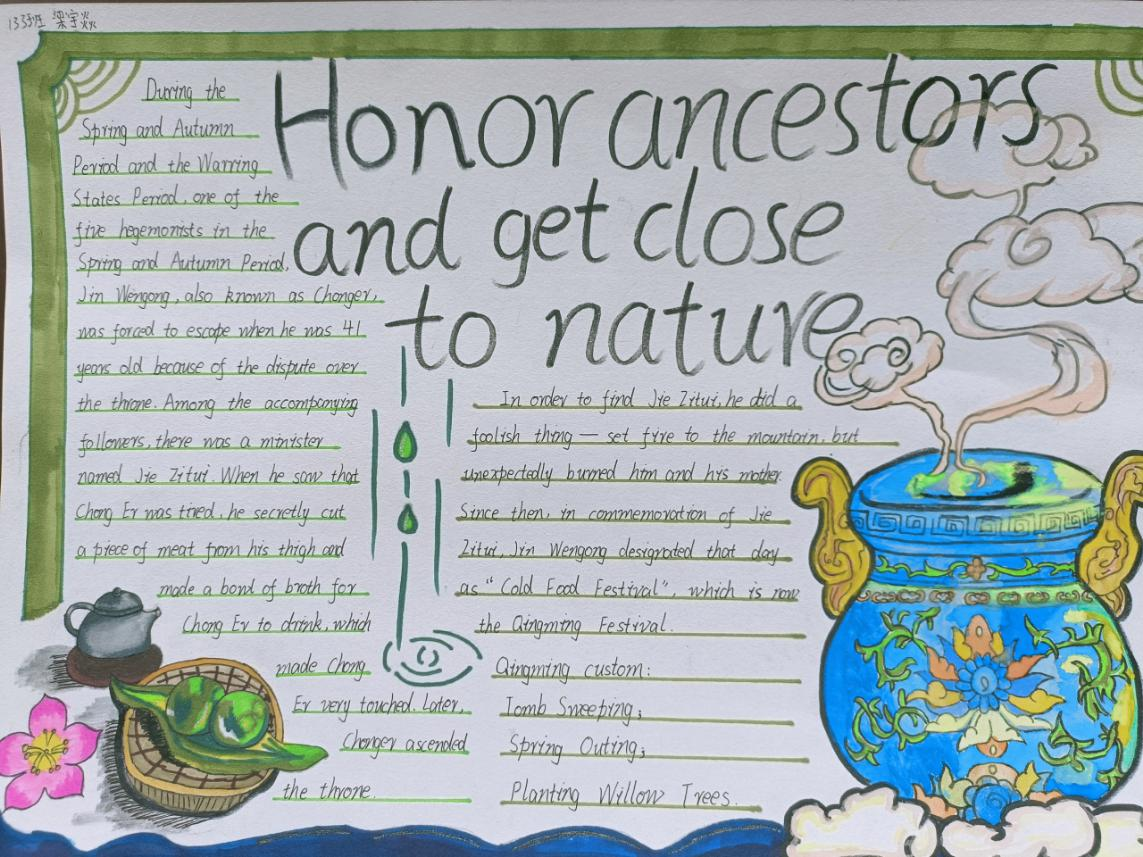 133班 梁宇焱
Honor ancestors
and get close
to nature
During the
Spring and Autumn
Period and the Warring
States Period, one of the
five hegemonists in the
Spring and Autumn Period,
Jin Wengong, also known as Chonger,
was forced to escape when he was 41
years old because of the dispute over
the throne. Among the accompanying
followers, there was a minister
named Jie Zitui. When he saw that
Chong Er was tired, he secretly cut
a piece of meat from his thigh and
made a bowl of broth for
Chong Er to drink, which
made Chong
Er very touched. Later,
Chonger ascended
the throne.
In order to find Jie Zitui, he did a
foolish thing — set fire to the mountain, but
unexpectedly burned him and his mother.
Since then, in commemoration of Jie
Zitui, Jin Wengong designated that day
as "Cold Food Festival", which is now
the Qingming Festival.
Qingming custom:
Tomb Sweeping;
Spring Outing;
Planting Willow Trees.